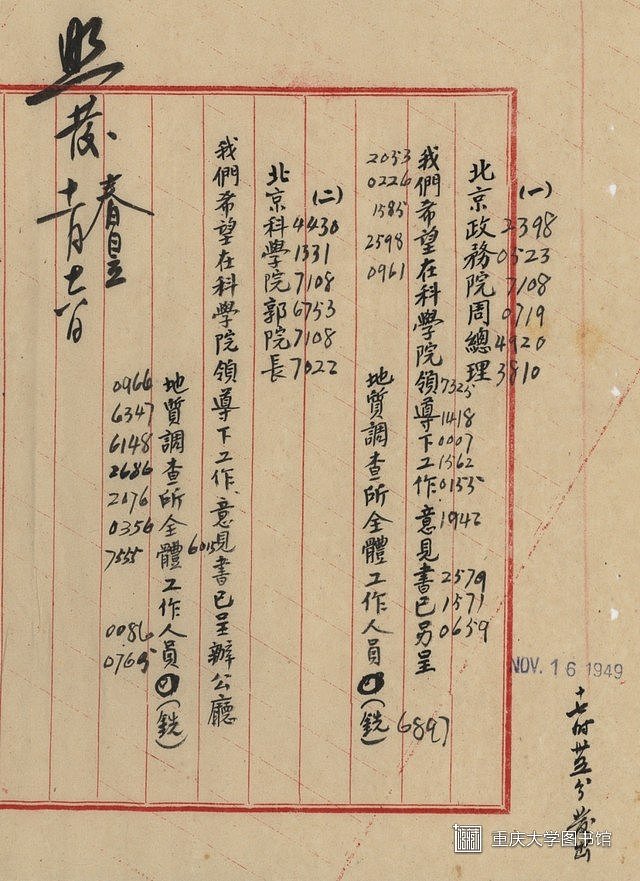 (一)
2398
0523
7108
0719
4920
3810
北京政務院周總理
7325
1418
0007
1562
0155
1942
2579
1571
0659
我們希望在科學院領導下工作、意見書已另呈
2053
0226
1585
2598
0961
地質調查所全體工作人員
(銑)
6897
(二)
4430
1331
7108
6753
7108
7022
北京科學院郭院長
我們希望在科學院領導下工作、意見書已呈辦公廳
6015
地質調查所全體工作人員
(銑)
0966
6347
6148
2686
2076
0356
7555
0086
0765
照發
春昱
十一月十六日
NOV. 16 1949
十七时廿五分發出
重庆大学图书馆